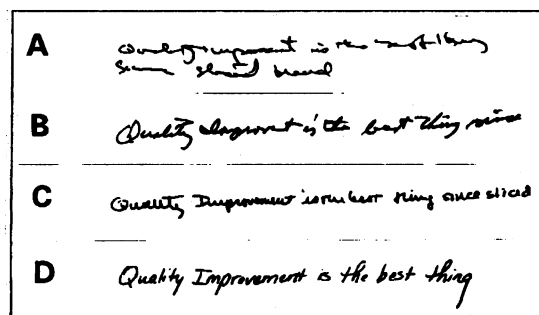 A Quality Improvement is the best thing
since sliced bread
B Quality Improvment is the best thing since
C Quality Improvement is the best thing since sliced
D Quality Improvement is the best thing